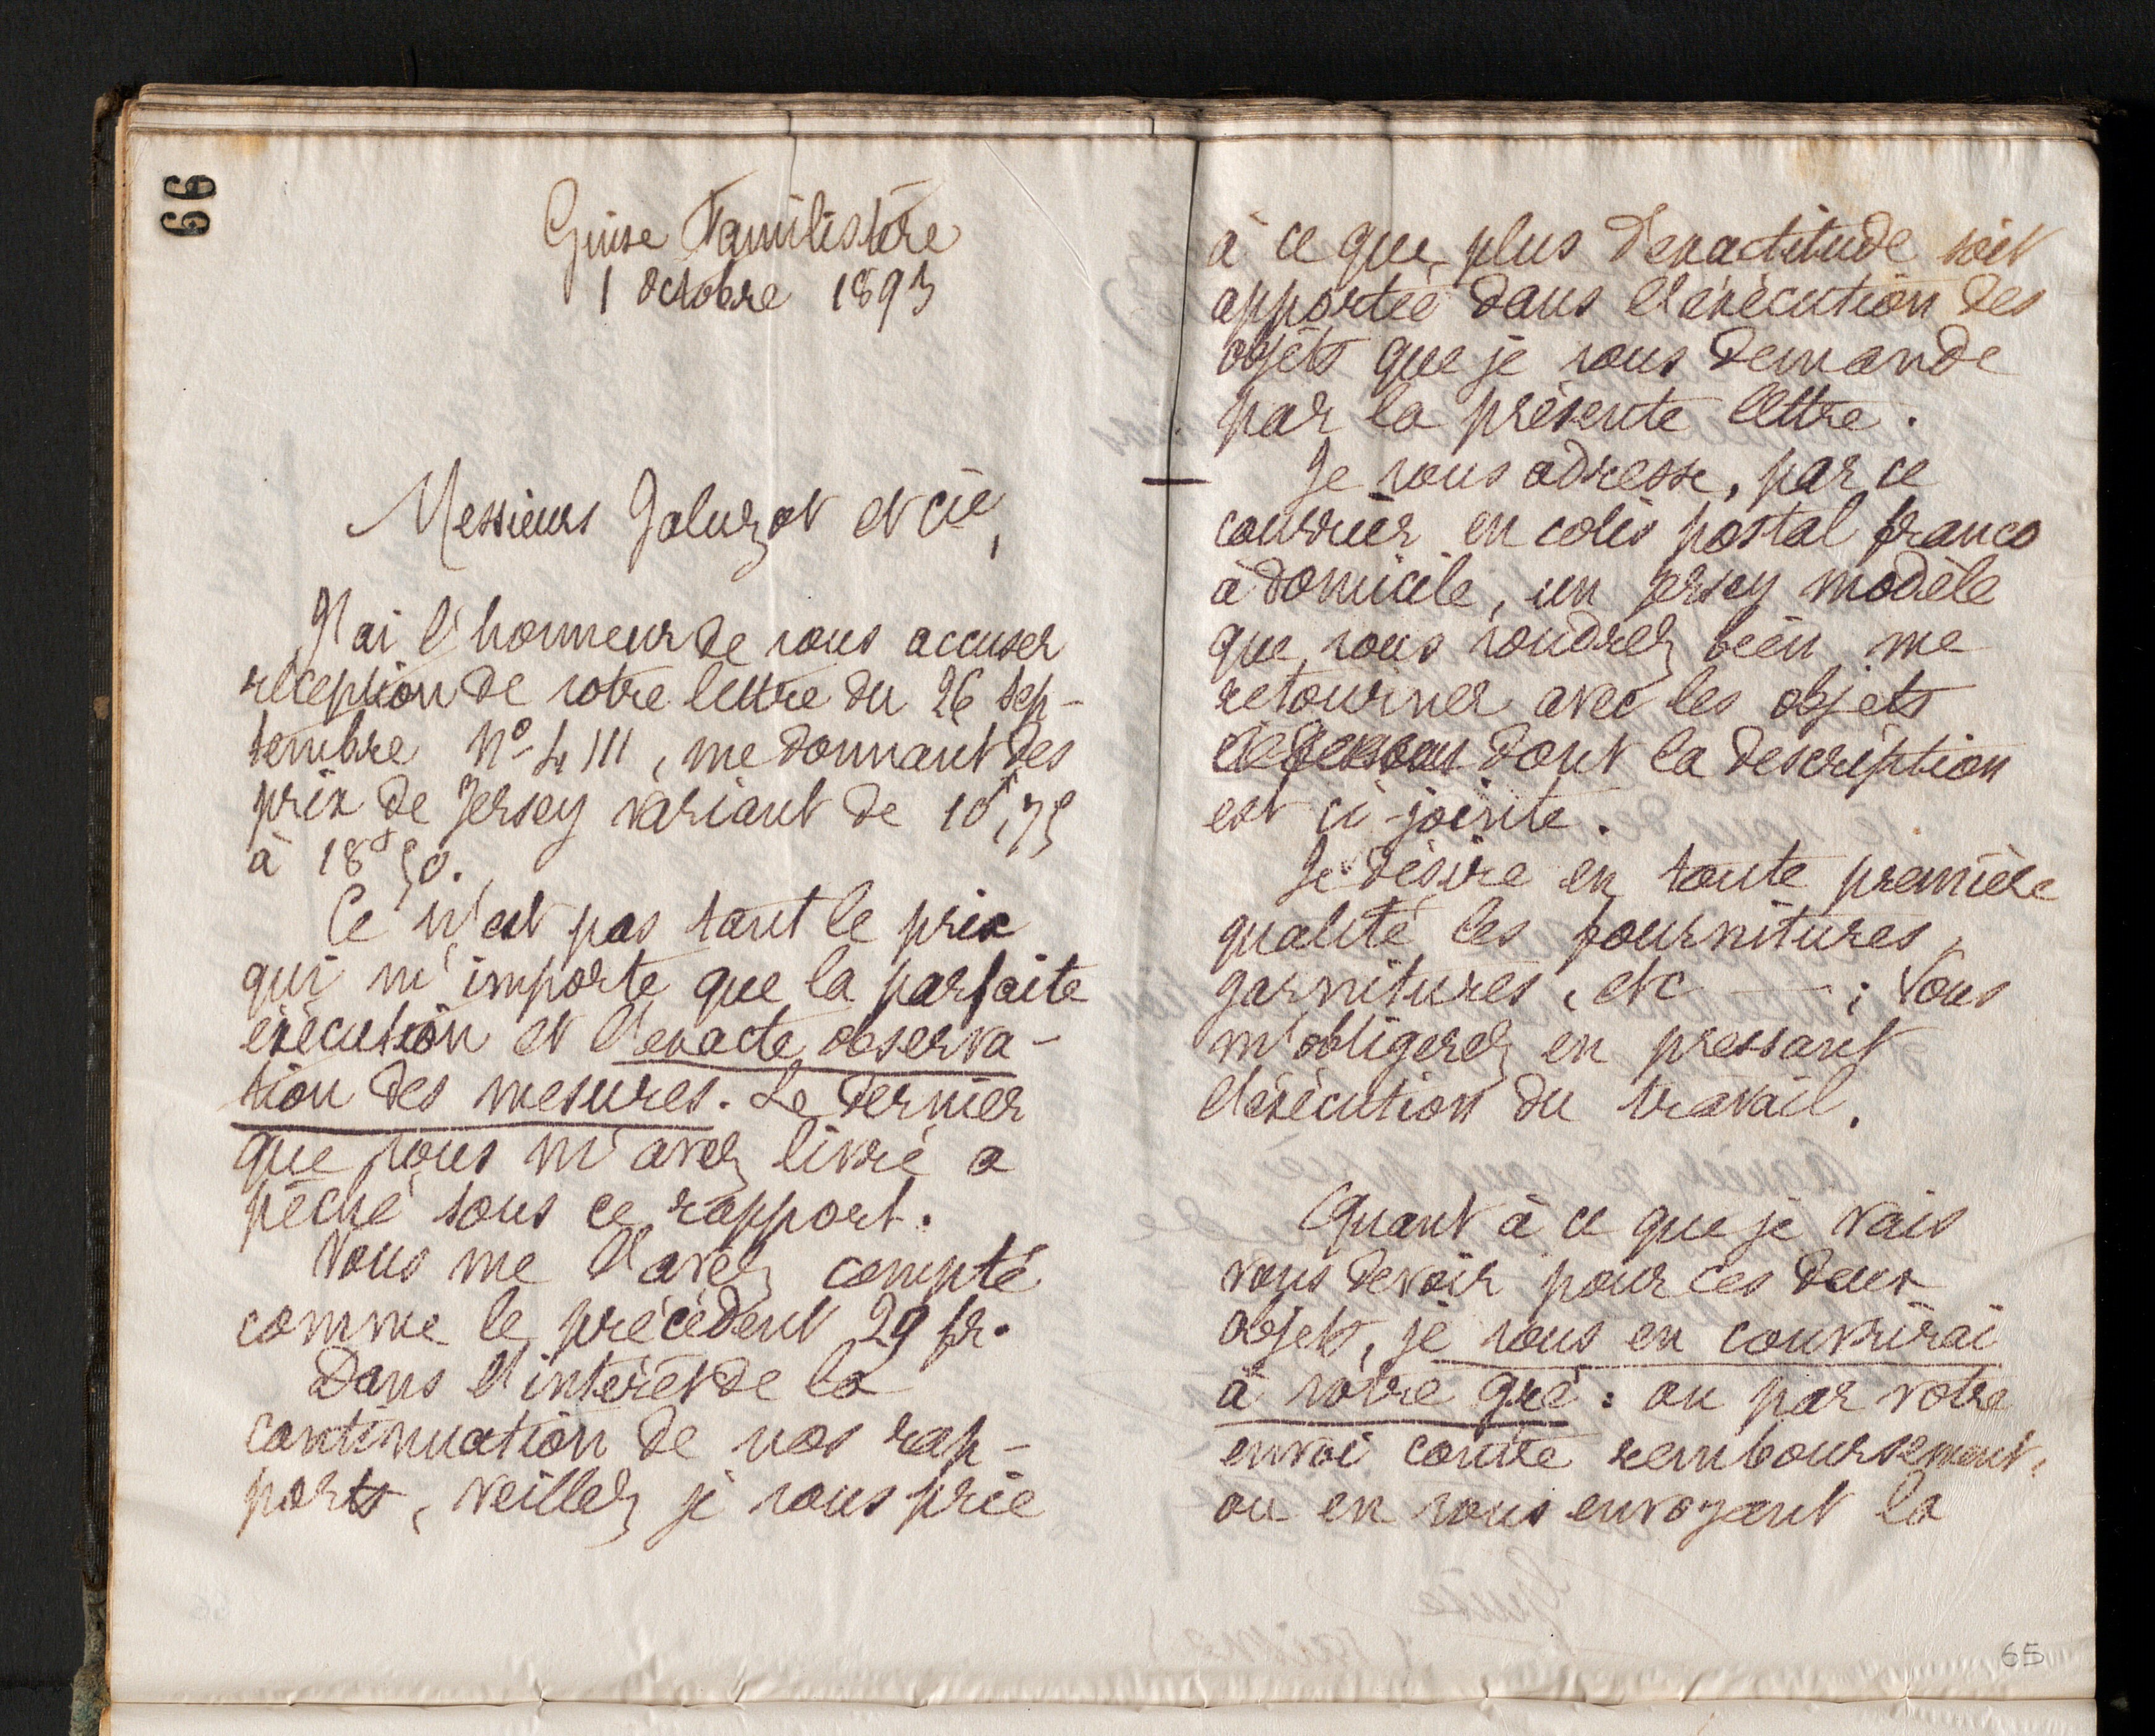 66
Guise Familistère
1 Octobre 1893
Messieurs Jaluzot et Cie,
J'ai l'honneur de vous accuser
réception de votre lettre du 26 sep-
tembre N° 4111, me donnant des
prix de Jersey variant de 10f,75
à 18f50.
Ce n'est pas tant le prix
qui m'importe que la parfaite
exécution et l'exacte observa-
tion des mesures. Le dernier
que vous m'avez livré a
péché sous ce rapport.
Vous me l'avez compté
comme le précédent 29 fr.
Dans l'intérêt de la
continuation de nos rap-
ports, veillez je vous prie
à ce que plus d'exactitude soit
apportée dans l'exécution des
objets que je vous demande
par la présente lettre.
Je vous adresse, par ce
courrier en colis postal franco
à domicile, un Jersey modèle
que vous voudrez bien me
retourner avec les objets
dont la description
est ci-jointe.
Je désire en toute première
qualité les fournitures,
garnitures, etc ; Vous
m'obligerez en pressant
l'exécution du travail.
Quant à ce que je vais
vous devoir pour ces deux
objets, je vous en couvrirai
à votre gré : ou par votre
envoi contre remboursement,
ou en vous envoyant la
65